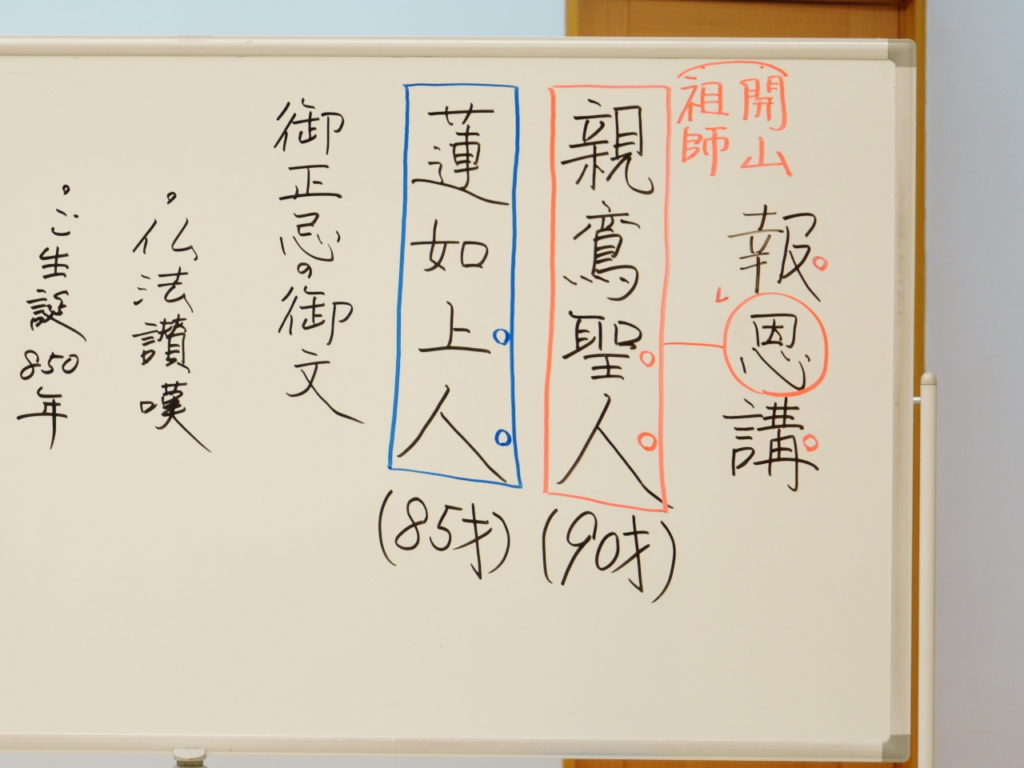 開山
祖師
報恩講
親鸞聖人
(90才)
蓮如上人
(85才)
御正忌の御文
・仏法讃嘆
・ご生誕850年